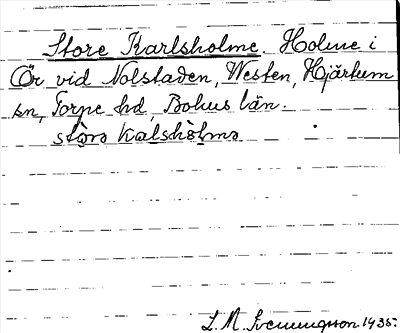 Store Karlsholme. Holme i
Ör vid Nolstaden, Westen, Hjärtum
sn, Torpe hd, Bohus län.
störə kalshòlmə
L. M. Svenungsson 1935.